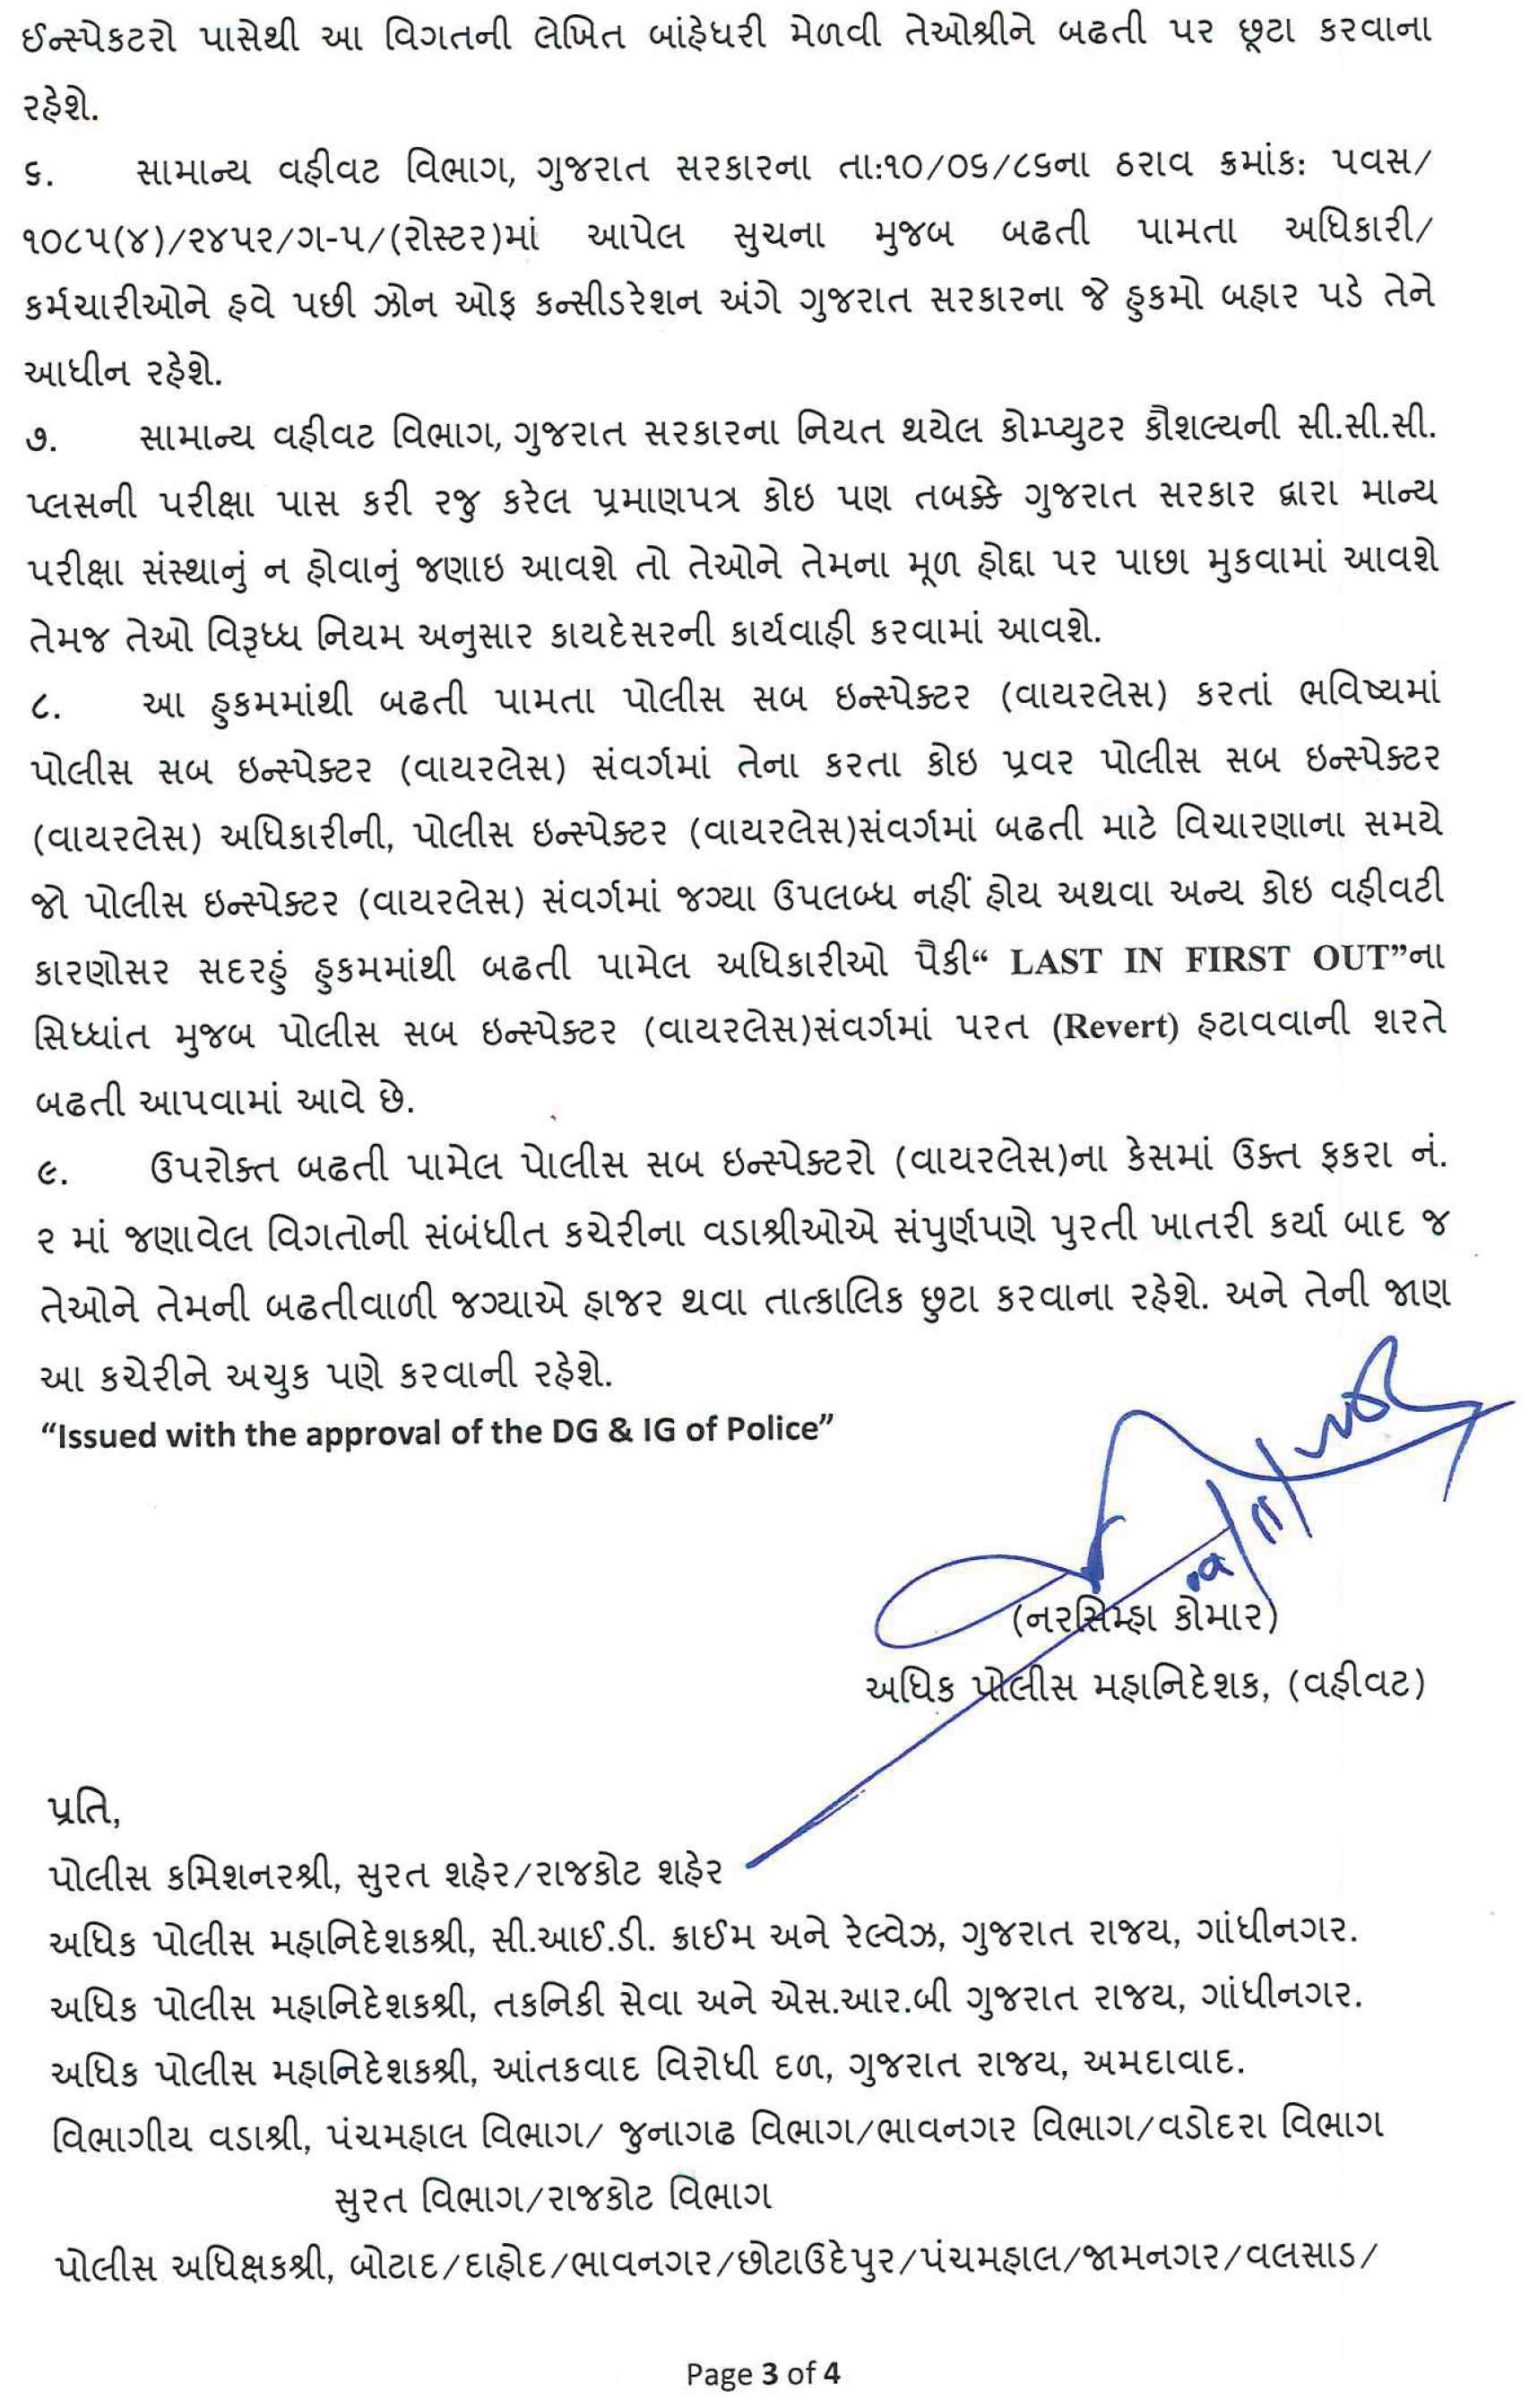 ઈન્સ્પેકટરો પાસેથી આ વિગતની લેખિત બાંહેધરી મેળવી તેઓશ્રીને બઢતી પર છૂટા કરવાના
રહેશે.
૬. સામાન્ય વહીવટ વિભાગ, ગુજરાત સરકારના તા:૧૦/૦૬/૮૬ના ઠરાવ ક્રમાંક: પવસ/
૧૦૮૫(૪)/૨૪૫૨/ગ-૫/(રોસ્ટર)માં આપેલ સુચના મુજબ બઢતી પામતા અધિકારી/
કર્મચારીઓને હવે પછી ઝોન ઓફ કન્સીડરેશન અંગે ગુજરાત સરકારના જે હુકમો બહાર પડે તેને
આધીન રહેશે.
૭. સામાન્ય વહીવટ વિભાગ, ગુજરાત સરકારના નિયત થયેલ કોમ્પ્યુટર કૌશલ્યની સી.સી.સી.
પ્લસની પરીક્ષા પાસ કરી રજુ કરેલ પ્રમાણપત્ર કોઇ પણ તબક્કે ગુજરાત સરકાર દ્વારા માન્ય
પરીક્ષા સંસ્થાનું ન હોવાનું જણાઇ આવશે તો તેઓને તેમના મૂળ હોદ્દા પર પાછા મુકવામાં આવશે
તેમજ તેઓ વિરૂધ્ધ નિયમ અનુસાર કાયદેસરની કાર્યવાહી કરવામાં આવશે.
૮. આ હુકમમાંથી બઢતી પામતા પોલીસ સબ ઇન્સ્પેક્ટર (વાયરલેસ) કરતાં ભવિષ્યમાં
પોલીસ સબ ઇન્સ્પેક્ટર (વાયરલેસ) સંવર્ગમાં તેના કરતા કોઇ પ્રવર પોલીસ સબ ઇન્સ્પેક્ટર
(વાયરલેસ) અધિકારીની, પોલીસ ઇન્સ્પેક્ટર (વાયરલેસ)સંવર્ગમાં બઢતી માટે વિચારણાના સમયે
જો પોલીસ ઇન્સ્પેક્ટર (વાયરલેસ) સંવર્ગમાં જગ્યા ઉપલબ્ધ નહીં હોય અથવા અન્ય કોઇ વહીવટી
કારણોસર સદરહું હુકમમાંથી બઢતી પામેલ અધિકારીઓ પૈકી“ LAST IN FIRST OUT”ના
સિધ્ધાંત મુજબ પોલીસ સબ ઇન્સ્પેક્ટર (વાયરલેસ)સંવર્ગમાં પરત (Revert) હટાવવાની શરતે
બઢતી આપવામાં આવે છે.
૯. ઉપરોક્ત બઢતી પામેલ પોલીસ સબ ઇન્સ્પેક્ટરો (વાયરલેસ)ના કેસમાં ઉક્ત ફકરા નં.
૨ માં જણાવેલ વિગતોની સંબંધીત કચેરીના વડાશ્રીઓએ સંપુર્ણપણે પુરતી ખાતરી કર્યા બાદ જ
તેઓને તેમની બઢતીવાળી જગ્યાએ હાજર થવા તાત્કાલિક છુટા કરવાના રહેશે. અને તેની જાણ
આ કચેરીને અચુક પણે કરવાની રહેશે.
“Issued with the approval of the DG & IG of Police”
(નરસિમ્હા કોમાર)
અધિક પોલીસ મહાનિદેશક, (વહીવટ)
પ્રતિ,
પોલીસ કમિશનરશ્રી, સુરત શહેર/રાજકોટ શહેર
અધિક પોલીસ મહાનિદેશકશ્રી, સી.આઈ.ડી. ક્રાઈમ અને રેલ્વેઝ, ગુજરાત રાજય, ગાંધીનગર.
અધિક પોલીસ મહાનિદેશકશ્રી, તકનિકી સેવા અને એસ.આર.બી ગુજરાત રાજય, ગાંધીનગર.
અધિક પોલીસ મહાનિદેશકશ્રી, આંતકવાદ વિરોધી દળ, ગુજરાત રાજય, અમદાવાદ.
વિભાગીય વડાશ્રી, પંચમહાલ વિભાગ/ જુનાગઢ વિભાગ/ભાવનગર વિભાગ/વડોદરા વિભાગ
સુરત વિભાગ/રાજકોટ વિભાગ
પોલીસ અધિક્ષકશ્રી, બોટાદ/દાહોદ/ભાવનગર/છોટાઉદેપુર/પંચમહાલ/જામનગર/વલસાડ/
Page 3 of 4